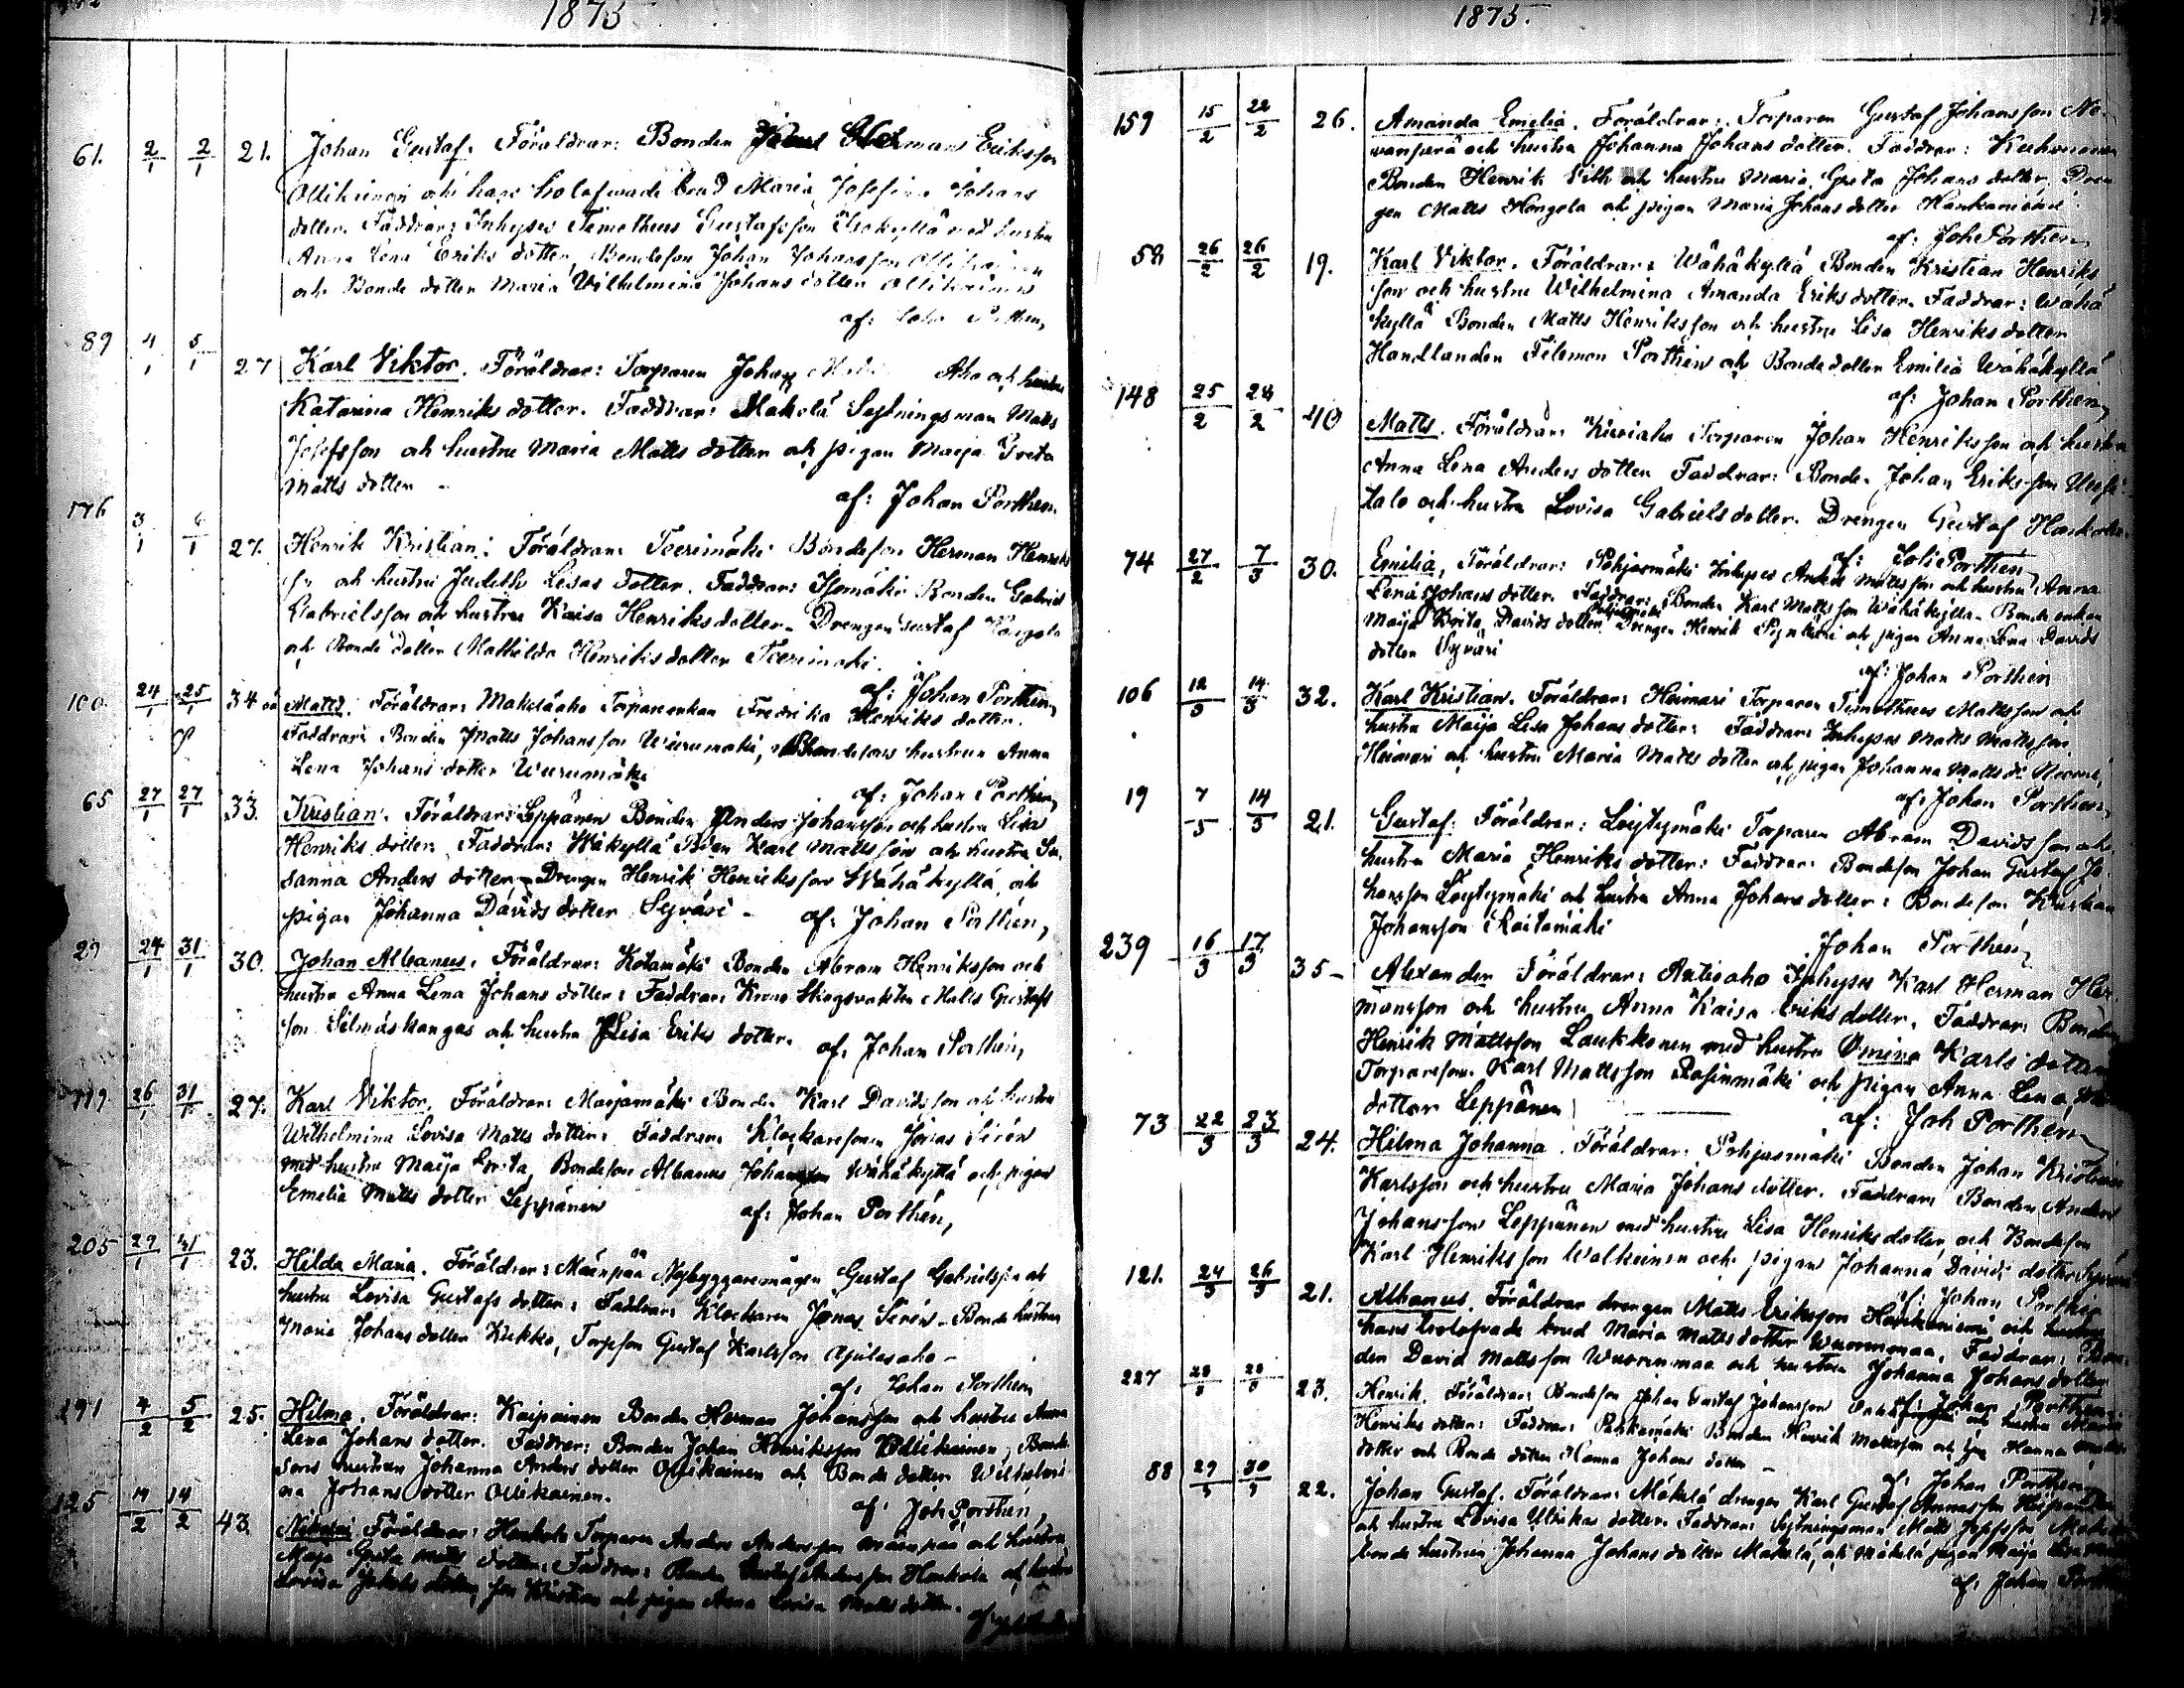 1875
61. 2/1 2/1 21. Johan Gustaf. Föräldrar: Bonden Hermans Eriksson
Ollikainen och hans trolofwade brud Maria Josefina Johans
dotter. Faddrar: Inhyses Timotheus Gustafsson med hustru
Anna Lena Eriks dotter, Bondeson Johan Johansson Ollikainen
och Bonde dotter Maria Wilhelmina Johans dotter Ollikainen
af: Johan Porthen,
89 4/1 5/1 27 Karl Viktor. Föräldrar: Torparen Johan Aho och hustru
Katarina Henriks dotter. Faddrar: Mäkelä Sytningsman Matts
Josefsson och hustru Maria Matts dotter och pigan Maija Greta
Matts dotter
af: Johan Porthen.
176 3/1 6/1 27. Henrik Kristian: Föräldrar: Teerimäki Bondeson Herman Henriks
son och hustru Judith Lisas dotter. Faddrar: Isomäki Bonden Gabriel
Gabrielsson och hustru Kaisa Henriks dotter. Drengen Gustaf Kangola
och Bonde dotter Mathilda Henriks dotter Teerimäki.
af: Johan Porthen,
100. 24/1 25/1 34 Matts. Föräldrar: Mäkeläaho Torpareenkan Fredrika Henriks dotter.
Faddrar: Bonden Matts Johansson Wuorumäki, Bondesons hustrun Anna
Lena Johans dotter Wuorumäki
af: Johan Porthen,
65 27/1 27/1 33. Kristian. Föräldrar: Leppänen Bonden Anders Johansson och hustru Lisa
Henriks dotter. Faddrar: Wäkyllä Bden Karl Mattsson och hustru Su
sanna Anders dotter, Drengen Henrik Henriksson Wähäkyllä, och
pigan Johanna Davids dotter Syväri. af: Johan Porthen,
29 24/1 31/1 30. Johan Albanus. Föräldrar: Kotamäki Bonden Abram Henriksson och
hustru Anna Lena Johans dotter: Faddrar: Krono Skogsvaktare Matts Gustafs
son Silmäskangas och hustru Lisa Eriks dotter. af: Johan Porthen,
119 26/1 31/1 27. Karl Viktor. Föräldrar: Marjamäki Bonden Karl Davidsson och hustru
Wilhelmina Lovisa Matts dotter: Faddrar: Klockaresonen Jonas Sirén
med hustru Maija Greta, Bondeson Albanus Johansson Wähäkyllä och pigan
Emelia Matts dotter Leppänen af: Johan Porthen,
205 29/1 31/1 23. Hilda Maria. Föräldrar: Mäenpää Nybyggaremågen Gustaf Gabrielsson och
hustru Lovisa Gustafs dotter: Faddrar: Klockaren Jonas Sirén. Bonde hustrun
Maria Johans dotter Kukko, Torpson Gustaf Karlsson Ajulasaho
af: Johan Porthen
291 4/2 5/2 25. Hilma. Föräldrar: Kaipainen Bonden Herman Johansson och hustru Anna
Lena Johans dotter. Faddrar: Bonden Johan Henriksson Ollikainen, Bonde
sons hustrun Johanna Anders dotter Ollikainen och Bonde dotter Wilhelmi
na Johans dotter Ollikainen.
af: Joh Porthen,
125 14/2 14/2 43. Nikolai Föräldrar: Honkola Torparen Anders Andersson Mäenpää och hustru
Maja Greta Matts dotter: Faddrar: Bonden Gustaf Andersson Honkola och hustru
Lovisa Jakobs dotter, son Kristian och pigan Anna Lovisa Matts dotter.
1875.
159 15/2 22/2 26. Amanda Emelia. Föräldrar: Torparen Gustaf Johansson Ne
vanperä och hustru Johanna Johans dotter. Faddrar:
Bonden Henrik Vith och hustru Maria Greta Johans dotter. Dren
gen Matts Hongola och pigan Maria Johans dotter Hankaniemi.
af: Joh Porthen,
58 26/2 26/2 19. Karl Viktor. Föräldrar: Wähäkyllä Bonden Kristian Henriks
son och hustru Wilhelmina Amanda Eriks dotter. Faddrar: Wähä
kyllä Bonden Matts Henriksson och hustru Lisa Henriks dotter
Handlanden Filemon Porthén och Bonde dotter Emilia Wähäkyllä
af: Johan Porthen,
148 25/2 28/2 40 Matts. Föräldrar: Kiviaho Torparen Johan Henriksson och hustru
Anna Lena Anders dotter Faddrar: Bonden Johan Eriksson Uusi
talo och hustru Lovisa Gabriels dotter. Drengen Gustaf Honkola
af: Joh Porthen
74 27/2 7/3 30. Emilia, Föräldrar: Pohjasmäki Inhyses Anders Mattsson och hustru Anna
Lena Johans dotter. Faddrar: Bonden Karl Mattsson Wähäkyllä. Bonde enkan
Maija Brita Davids dotter Drengen Henrik och pigan Anna Lena Davids
dotter Syväri
af: Johan Porthen
106 12/3 14/3 32. Karl Kristian. Föräldrar: Heimari Torparen Timotheus Mattsson och
hustru Maija Lisa Johans dotter: Faddrar: Inhyses Matts Mattsson
Heimari och hustru Maria Matts dotter och pigan Johanna Matts dr
af: Johan Porthen,
19 7/3 14/3 21. Gustaf: Föräldrar: Löytymäki Torparen Abram Davidsson och
hustru Maria Henriks dotter: Faddrar: Bondeson Johan Gustaf Jo
hansson Löytymäki och hustru Anna Johans dotter: Bondeson Kristian
Johansson Raitamäki
Johan Porthen,
239 16/3 17/3 35 Alexander Föräldrar: Antisaho Inhyses Karl Herman Her
mansson och hustru Anna Kaisa Eriks dotter. Faddrar: Bonden
Henrik Mattsson Laukkonen med hustru Omina Karls dotter
Torpareson Karl Mattsson Rosinmäki och pigan Anna Lena
dotter Leppänen
af: Joh Porthen
73 22/3 23/3 24. Hilma Johanna. Föräldrar: Pohjasmäki Bonden Johan Kristian
Karlsson och hustru Maria Johans dotter. Faddrar: Bonden Anders
Johansson Leppänen med hustru Lisa Henriks dotter och Bondeson
Karl Henriksson Walkeinen och pigan Johanna Davids dotter Syväri
af: Johan Porthen
121. 24/3 26/3 21. Albanus. Föräldrar drengen Matts Eriksson Hankaniemi och
hans trolofvade brud Maria Matts dotter Wuorenmaa. Faddrar: Bon
den David Mattsson Wuorenmaa och hustru Johanna Johans dotter
af: Johan Porthen
227 28/3 28/3 23. Henrik. Föräldrar: Bondeson Johan Gustaf Johansson och hustru Maria
Henriks dotter: Faddrar: Bonden Henrik Mattsson och Hanna
dotter och Bonde dotter Hanna Johans dotter
af: Johan Porthen
88 29/3 30/3 22. Johan Gustaf. Föräldrar: Mäkelä drengen Karl Gustaf
och hustru Lovisa Ulrikas dotter. Faddrar: Sytningsman Matts Josefsson Mäkelä
bonde hustrun Johanna Johans dotter Mäkelä, och Mäkelä pigan Maija
af: Johan